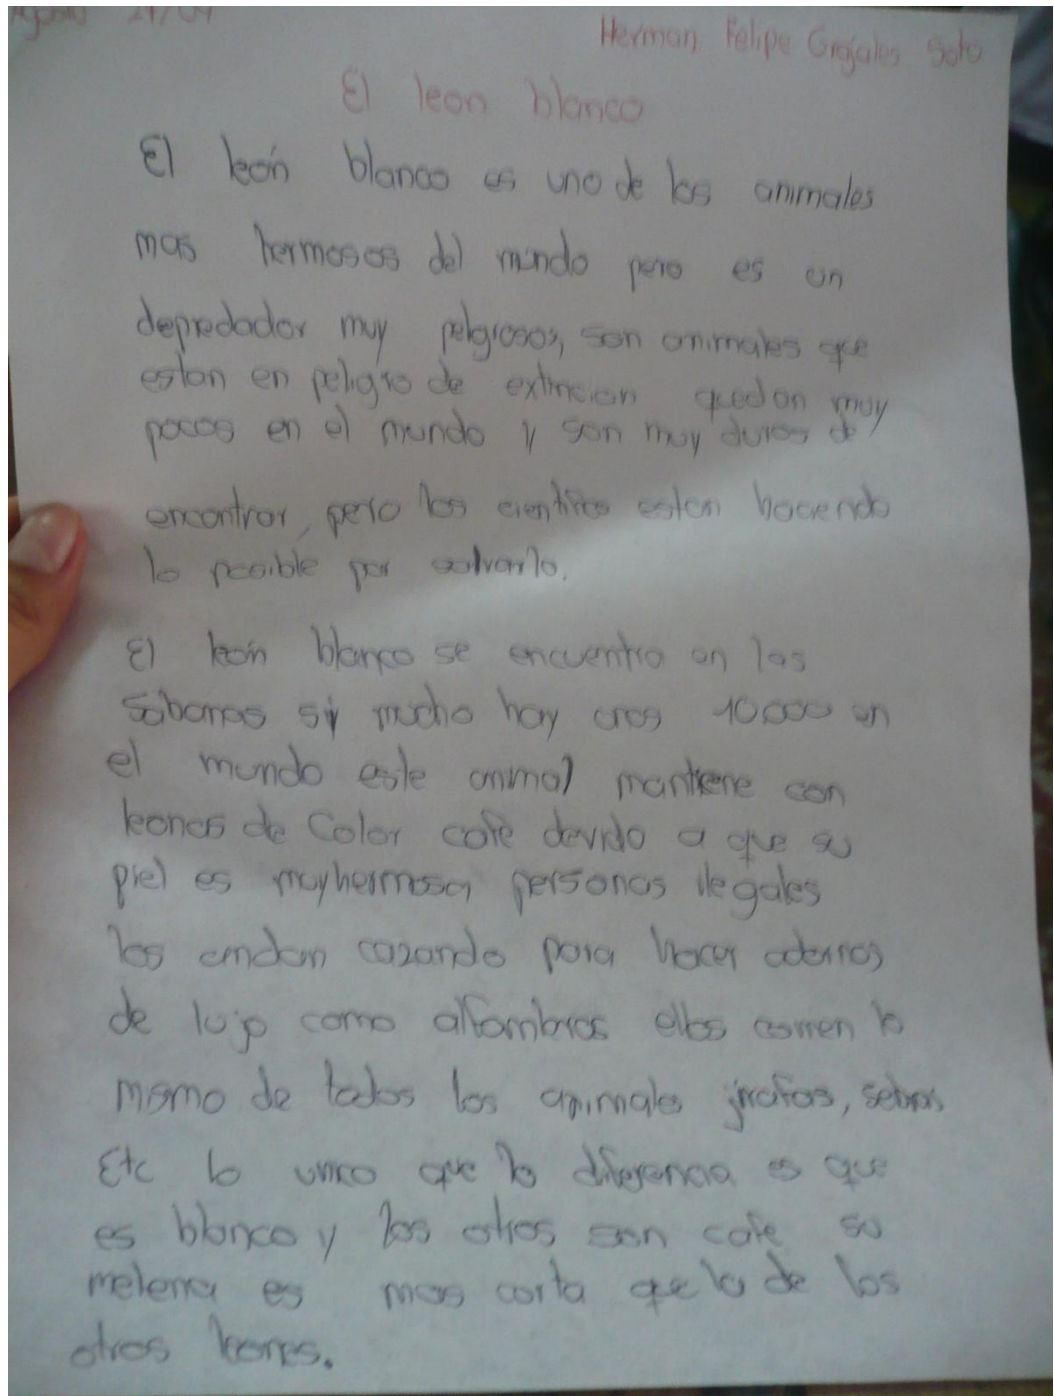 Agosto 27/09
Herman Felipe Grajales Soto
El leon blanco
El león blanco es uno de los animales
mas hermosos del mundo pero es un
depredador muy peligrosos, son animales que
estan en peligro de extincion quedan muy
pocos en el mundo y son muy duros de
encontrar, pero los cientificos estan haciendo
lo posible por salvarlo.
El león blanco se encuentra en las
sabanas si mucho hay unos 10000 en
el mundo este animal mantiene con
leones de color cafe devido a que su
piel es muy hermosa personas ilegales
los andan cazando para hacer adornos
de lujo como alfombras ellos comen lo
mismo de todos los animales jirafas, sebras
Etc lo unico que lo diferencia es que
es blanco y los otros son cafe su
melena es mas corta que la de los
otros leones.